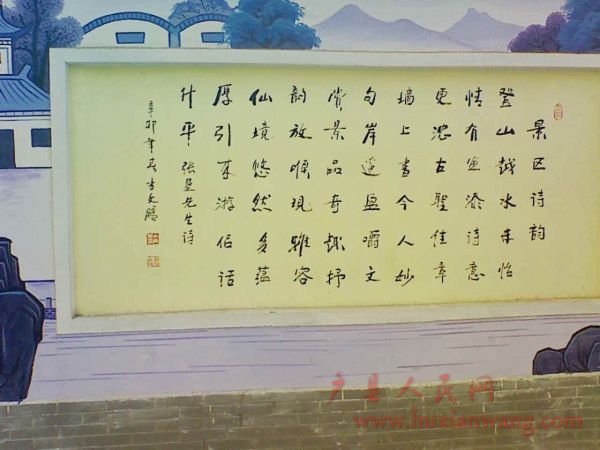 景区诗韵
登山越水来怡
情有添诗意
更浓古圣佳章
墙上书今人妙
句岸盈嚼文
赏景品奇趣抒
韵放喉现雅容
仙境悠然多蕴
厚引来游侣话
什平 张先生诗
辛卯年春李文鹏
户县人民网
www.huxianwang.com